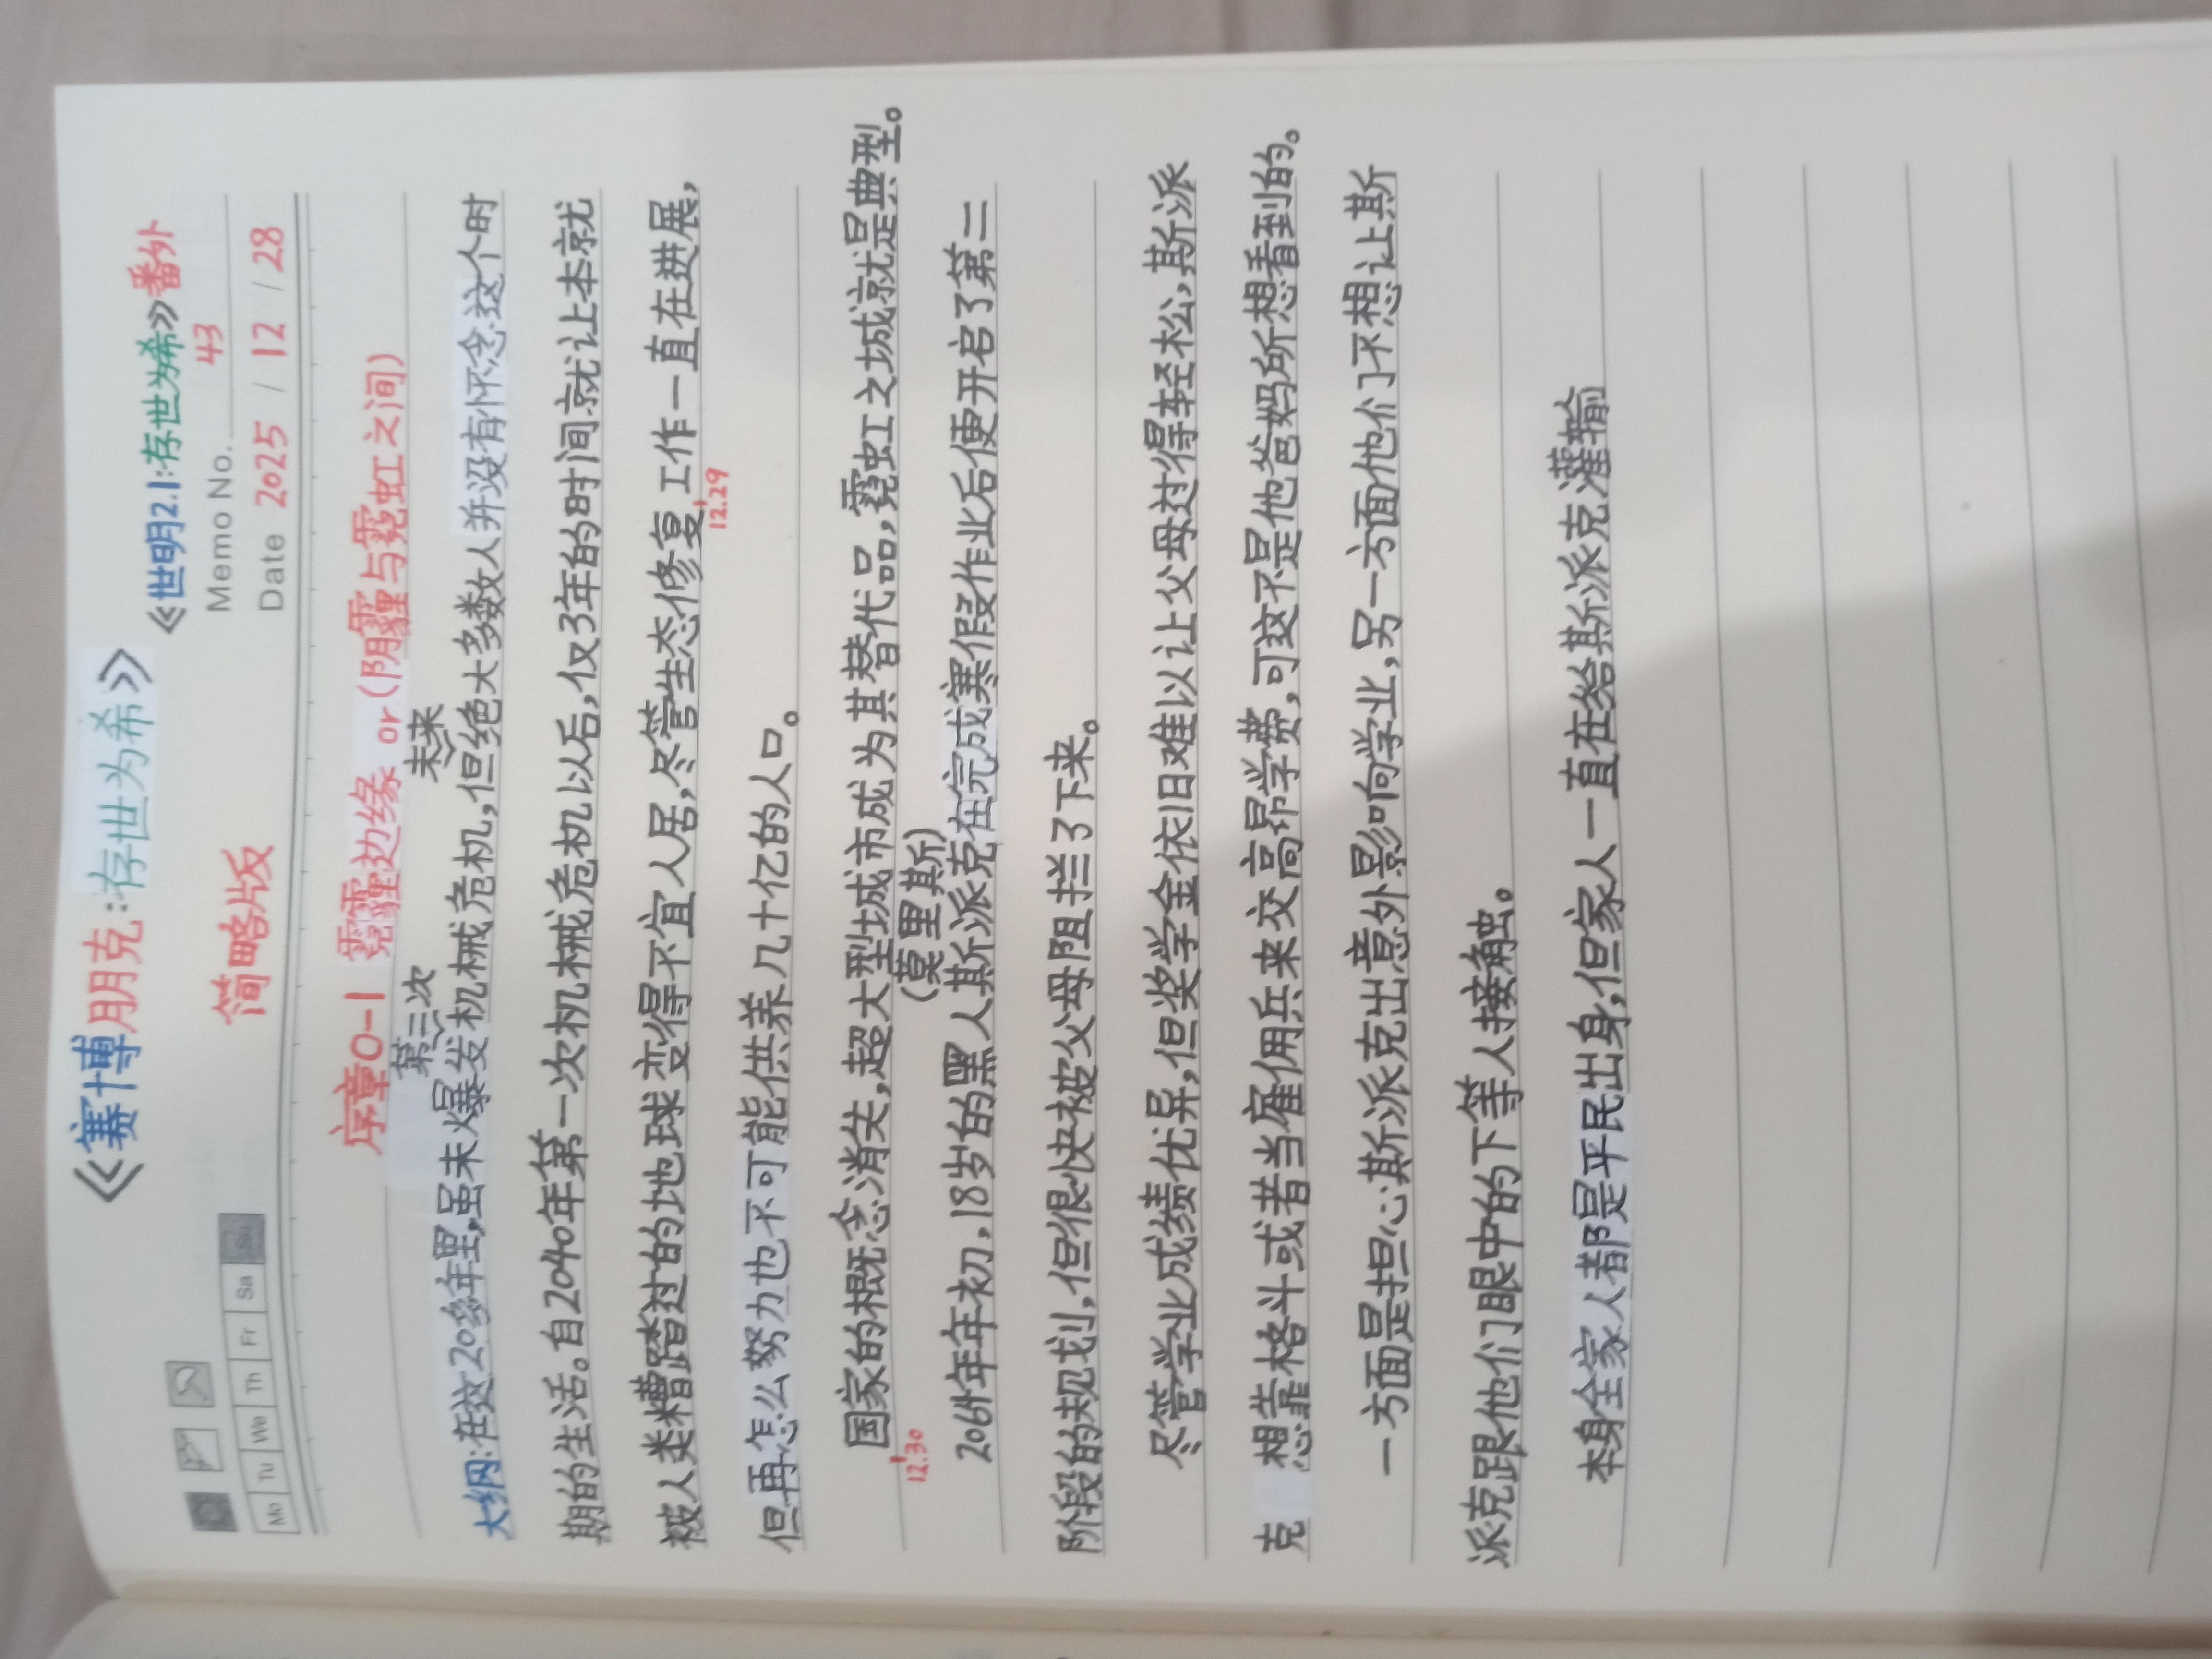 《赛博朋克:存世为希》
《世明2.1:存世为希》番外
简略版
Memo No. 43
Mo Tu We Th Fr Sa Su
Date 2025 / 12 / 28
序章0-1 霓霾边缘 or (阴霾与霓虹之间)
第三次 未来
大纲:在这20多年里,虽未爆发机械危机,但绝大多数人并没有怀念这个时
期的生活。自2040年第一次机械危机以后,仅3年的时间就让本就
被人类糟蹋过的地球变得不宜人居,尽管生态修复工作一直在进展,
12.29
但再怎么努力也不可能供养几十亿的人口。
国家的概念消失,超大型城市成为其替代品,霓虹之城就是典型。
12.30
(莫里斯)
2064年年初,18岁的黑人斯派克在完成寒假作业后便开启了第二
阶段的规划,但很快被父母阻拦了下来。
尽管学业成绩优异,但奖学金依旧难以让父母过得轻松,斯派
克 想靠格斗或者当雇佣兵来交高昂学费,可这不是他爸妈所想看到的。
一方面是担心斯派克出意外影响学业,另一方面他们不想让斯
派克跟他们眼中的下等人接触。
本身全家人都是平民出身,但家人一直在给斯派克灌输